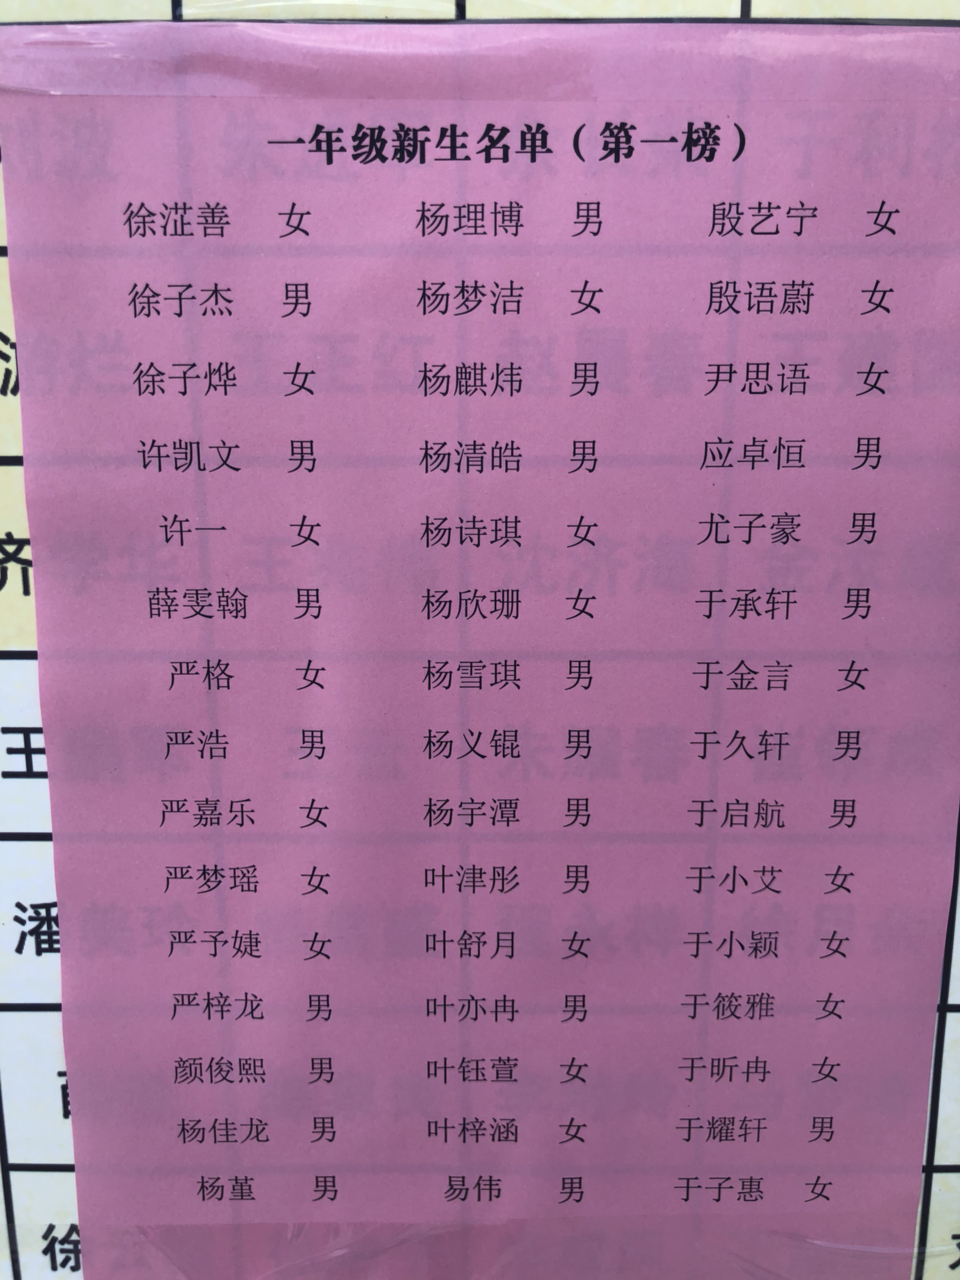 一年级新生名单（第一榜）
徐淽善 女 杨理博 男 殷艺宁 女
徐子杰 男 杨梦洁 女 殷语蔚 女
徐子烨 女 杨麒炜 男 尹思语 女
许凯文 男 杨清皓 男 应卓恒 男
许一 女 杨诗琪 女 尤子豪 男
薛雯翰 男 杨欣珊 女 于承轩 男
严格 女 杨雪琪 男 于金言 女
严浩 男 杨义锟 男 于久轩 男
严嘉乐 女 杨宇潭 男 于启航 男
严梦瑶 女 叶津彤 男 于小艾 女
严予婕 女 叶舒月 女 于小颖 女
严梓龙 男 叶亦冉 男 于筱雅 女
颜俊熙 男 叶钰萱 女 于昕冉 女
杨佳龙 男 叶梓涵 女 于耀轩 男
杨堇 男 易伟 男 于子惠 女
济
王
潘
徐